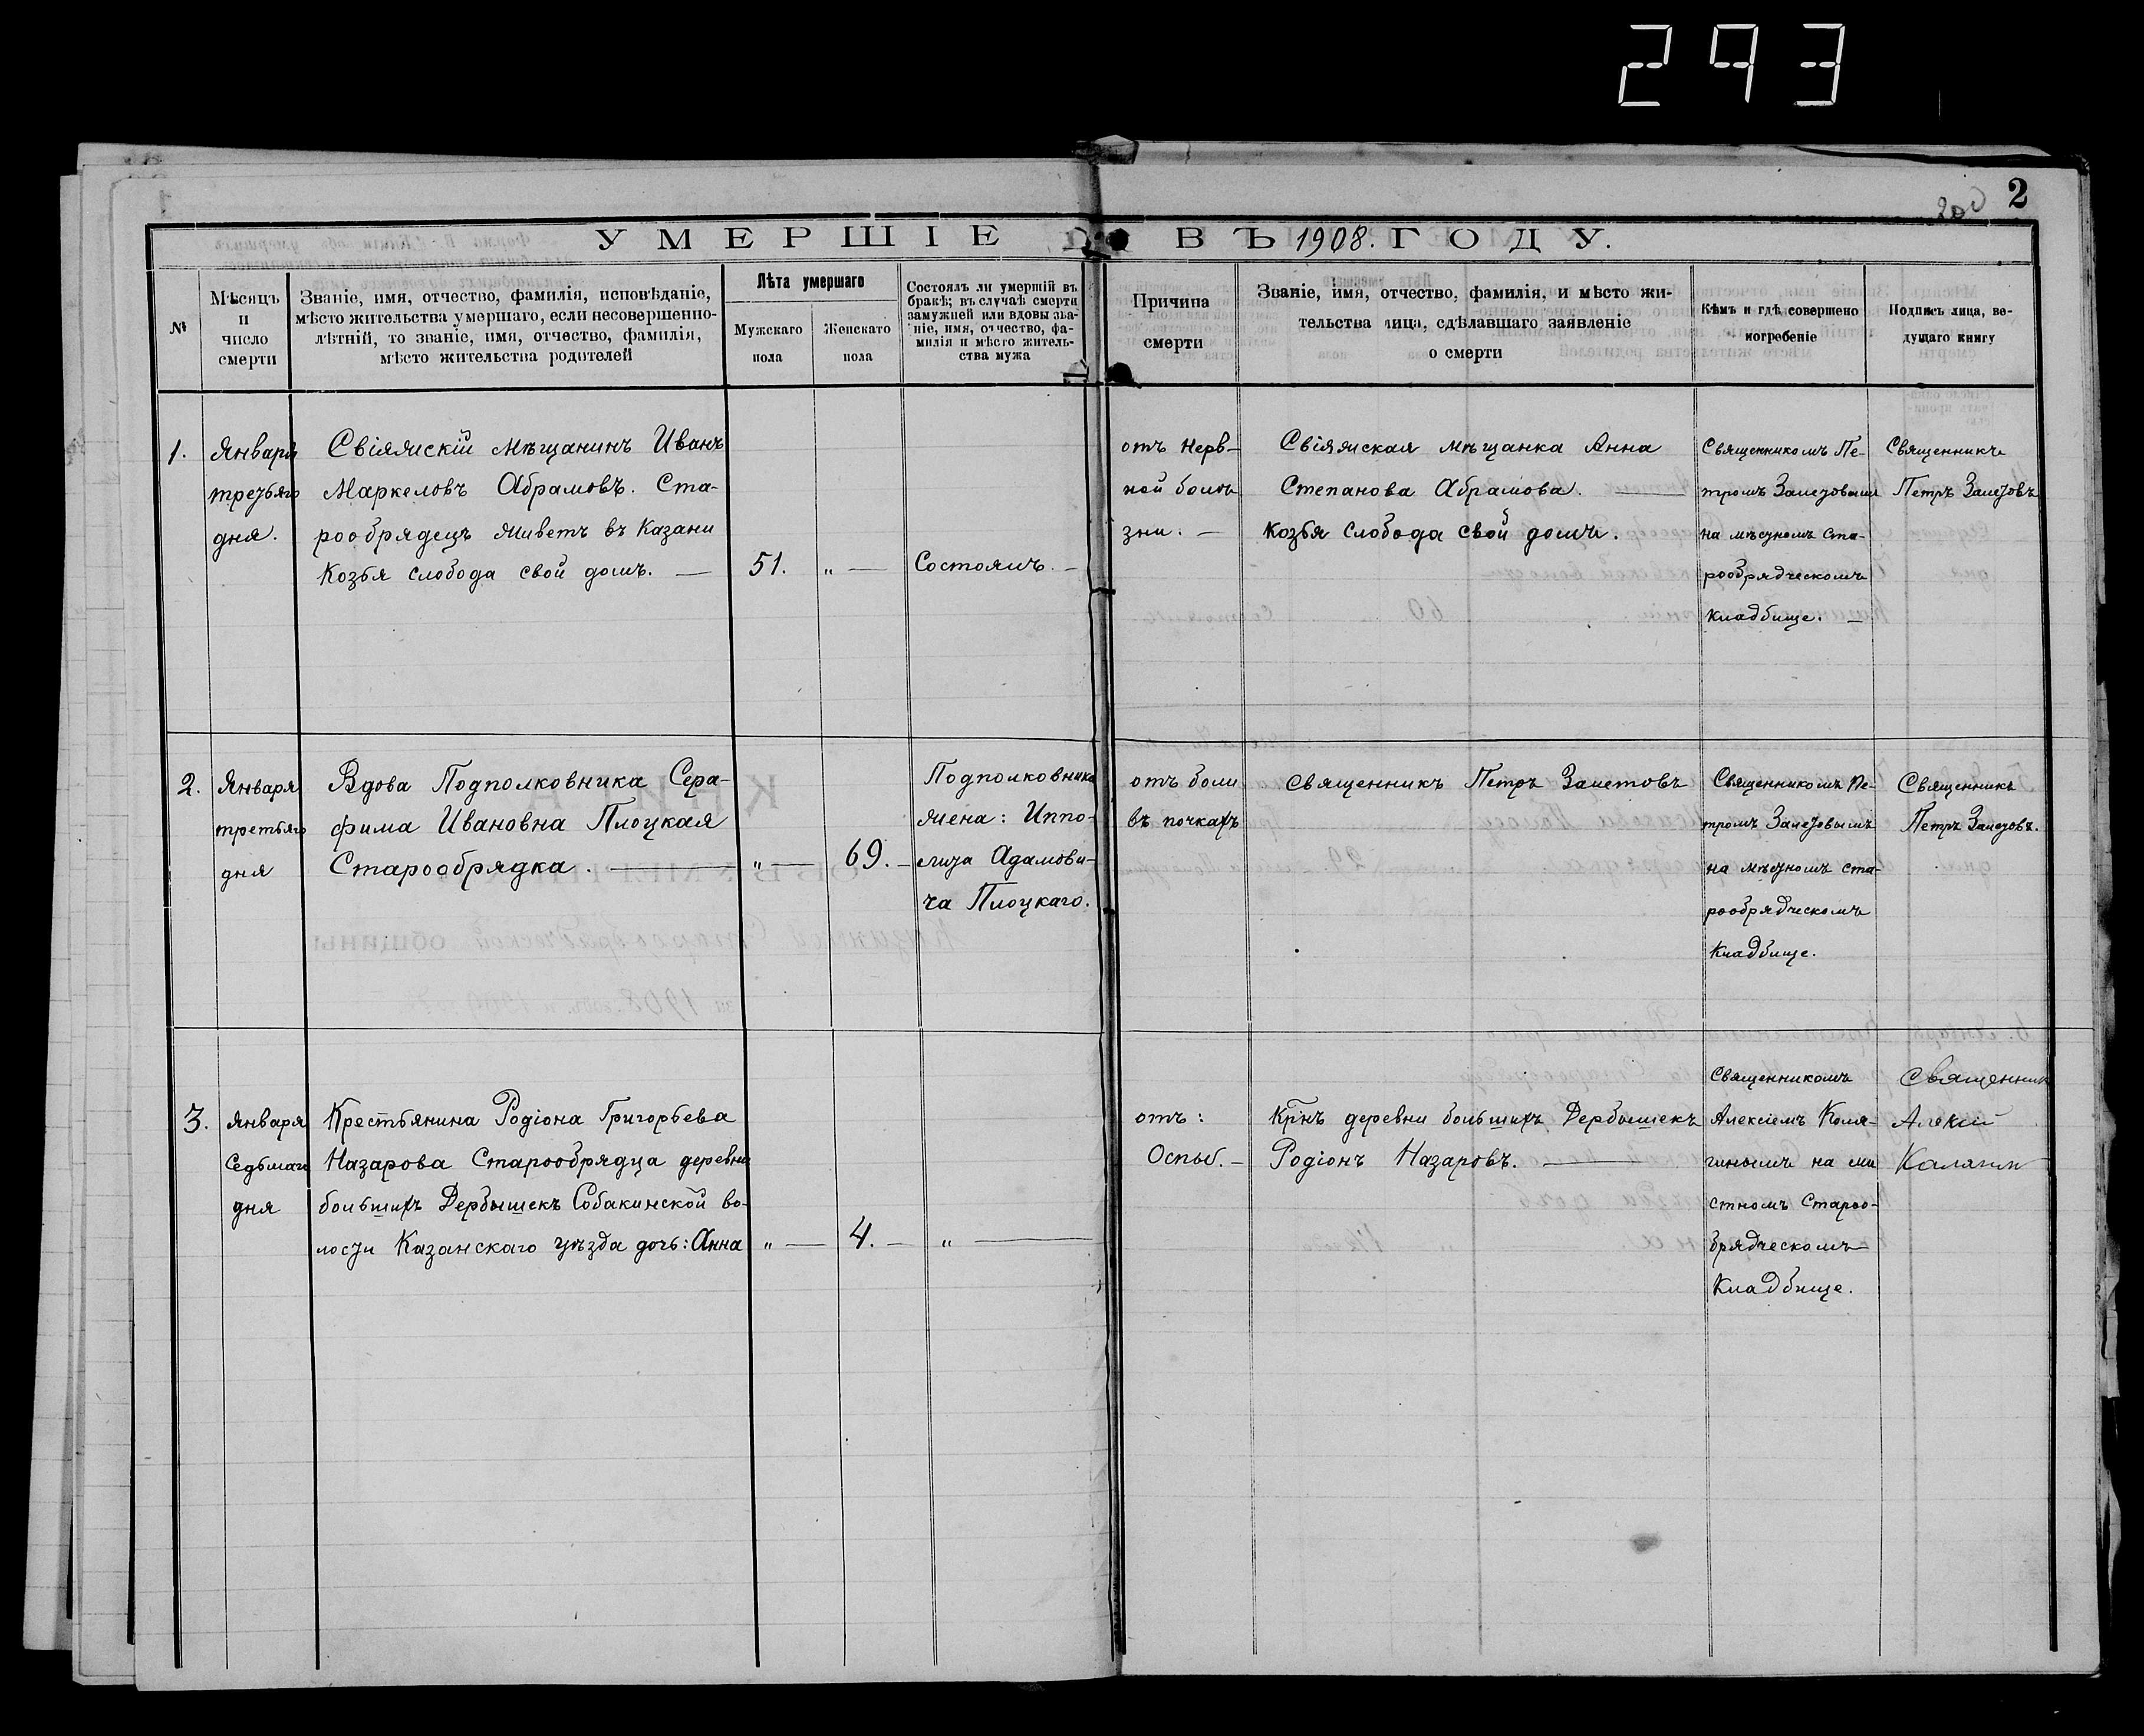 293
2
УМЕРШІЕ ВЪ 1908. ГОДУ.
№
Мѣсяцъ
и
число
смерти
Званіе, имя, отчество, фамилія, исповѣданіе,
мѣсто жительства умершаго, если несовершенно-
лѣтній, то званіе, имя, отчество, фамилія,
мѣсто жительства родителей
Лѣта умершаго
Мужскаго
пола
Женскаго
пола
Состоялъ ли умершій въ
бракѣ; въ случаѣ смерти
замужней или вдовы зва-
ніе, имя, отчество, фа-
милія и мѣсто житель-
ства мужа
Причина
смерти
Званіе, имя, отчество, фамилія, и мѣсто жи-
тельства лица, сдѣлавшаго заявленіе
о смерти
Кѣмъ и гдѣ совершено
погребеніе
Подпись лица, ве-
дущаго книгу
1.
Января
третьяго
дня.
Свіяжскій мѣщанинъ Иванъ
Маркеловъ Абрамовъ. Ста-
рообрядецъ живетъ въ Казани
Козья слобода свой домъ. —
51.
„ —
Состоялъ. —
отъ нерв-
ной болѣ
зни. —
Свіяжская мѣщанка Анна
Степанова Абрамова. —
Козья Слобода свой домъ.
Священникомъ Пе-
тромъ Залетовымъ
на мѣстномъ ста-
рообрядческомъ
кладбище. —
Священникъ
Петръ Залетовъ
2.
Января
третьяго
дня
Вдова Подполковника Сера-
фима Ивановна Плоцкая
Старообрядка. —
„ —
69. —
Подполковника
жена: Иппо-
лита Адамови-
ча Плоцкаго.
отъ боли
въ почкахъ
Священникъ Петръ Залетовъ
Священникомъ Пе-
тромъ Залетовымъ
на мѣстномъ ста-
рообрядческомъ
Кладбище.
Священникъ
Петръ Залетовъ.
3.
Января
Седьмаго
дня
Крестьянина Родіона Григорьева
Назарова Старообрядца деревни
большихъ Дербышекъ Собакинской во-
лости Казанскаго уѣзда дочь: Анна
„ —
4. —
„ —
отъ:
Оспы. —
Кр̃нъ деревни большихъ Дербышекъ
Родіонъ Назаровъ. —
Священникомъ
Алексіемъ Каля-
гинымъ на мѣ
стномъ Старо-
брядческомъ
Кладбище.
Священник
Алексій
Калягин